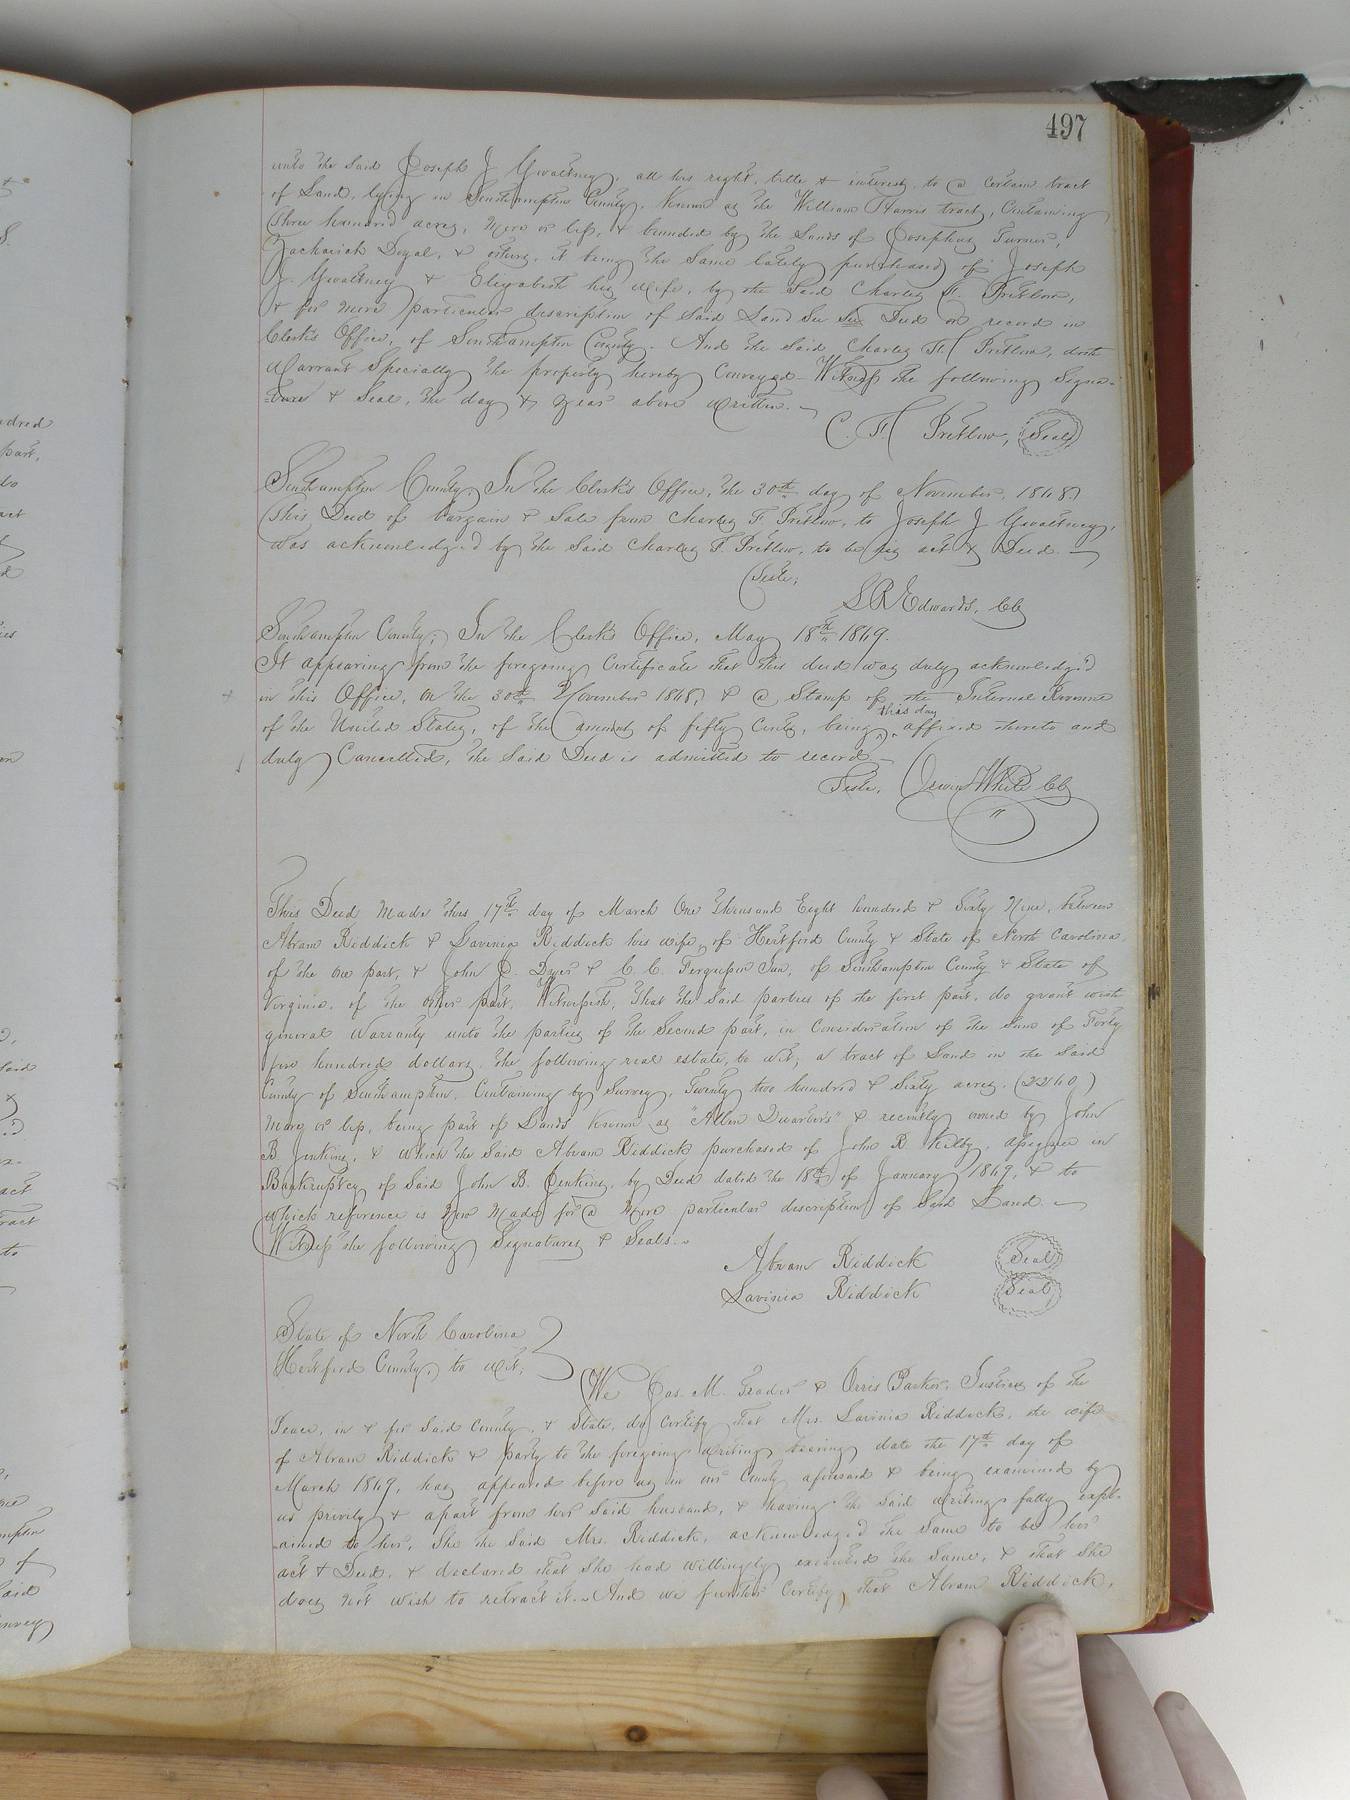 497
unto the said Joseph J Gwaltney, all his right, title & interest, to a certain tract
of Land, lying in Southampton County, Known as the William Harris tract, Containing
three hundred acres, more or less, & bounded by the Lands of Josephus Turner,
Zachariah Doyal, & others, it being the same lately purchased of Joseph
J. Gwaltney & Elizabeth his wife, by the said Charles F. Pretlow,
& for more particular description of said Land see Deed on record in
Clerk's Office, of Southampton County. And the said Charles F. Pretlow, doth
Warrant Specially the property hereby Conveyed - Witness the following Signa-
-ture & Seal, the day & year above written.
C. F. Pretlow, Seal
Southampton County, In the Clerk's Office, the 30th day of November, 1868,
This Deed of bargain & Sale from Charles F. Pretlow, to Joseph J Gwaltney,
was acknowledge'd by the said Charles F. Pretlow, to be his act & Deed.
Teste,
L R Edwards, Clk
Southampton County, In the Clerk's Office, May 18th 1869.
It appearing from the foregoing Certificate that this deed was duly acknowledge'd
in this Office, on the 30th November 1868, & a Stamp of the Internal Revenue
of the United States, of the amount of fifty Cents, being this day affixed thereto and
duly Cancelled, the said Deed is admitted to record -
Teste, White Clk
This Deed Made this 17th day of March One thousand Eight hundred & Sixty Nine, between
Abram Riddick & Lavinia Riddick his wife, of Hertford County & State of North Carolina,
of the one part, & John D. Dyer & C. C. Ferguson Jun, of Southampton County & State of
Virginia, of the other part, Witnesseth, That the said parties of the first part, do grant with
general Warranty unto the parties of the Second part, in Consideration of the Sum of Forty
five hundred dollars, the following real estate, to wit; a tract of Land in the said
County of Southampton, Containing by Survey, Twenty two hundred & Sixty acres, (2260)
more or less, being part of Lands Known as "Allen Quarters" & recently owned by John
B. Jenkins, & which the said Abram Riddick purchased of John R Kilby, assignee in
Bankruptcy of said John B. Jenkins, by Deed dated the 18th of January 1869, & to
which reference is now made for a more particular description of said Land.
Witness the following Signatures & Seals.
Abram Riddick Seal
Lavinia Riddick Seal
State of North Carolina
Hertford County, to wit,
We Jas. M. Trader & Orris Parker, Justices of the
Peace, in & for said County, & State, do Certify that Mrs. Lavinia Riddick, the wife
of Abram Riddick & party to the foregoing writing bearing date the 17th day of
March 1869, has appeared before us in our County aforesaid & being examined by
us privily & apart from her said husband, & having the said writing fully expl-
-ained to her, She the said Mrs. Riddick, acknowledge'd the Same to be her
act & Deed, & declared that She had willingly executed the Same, & that She
does not wish to retract it. And we further Certify, that Abram Riddick,